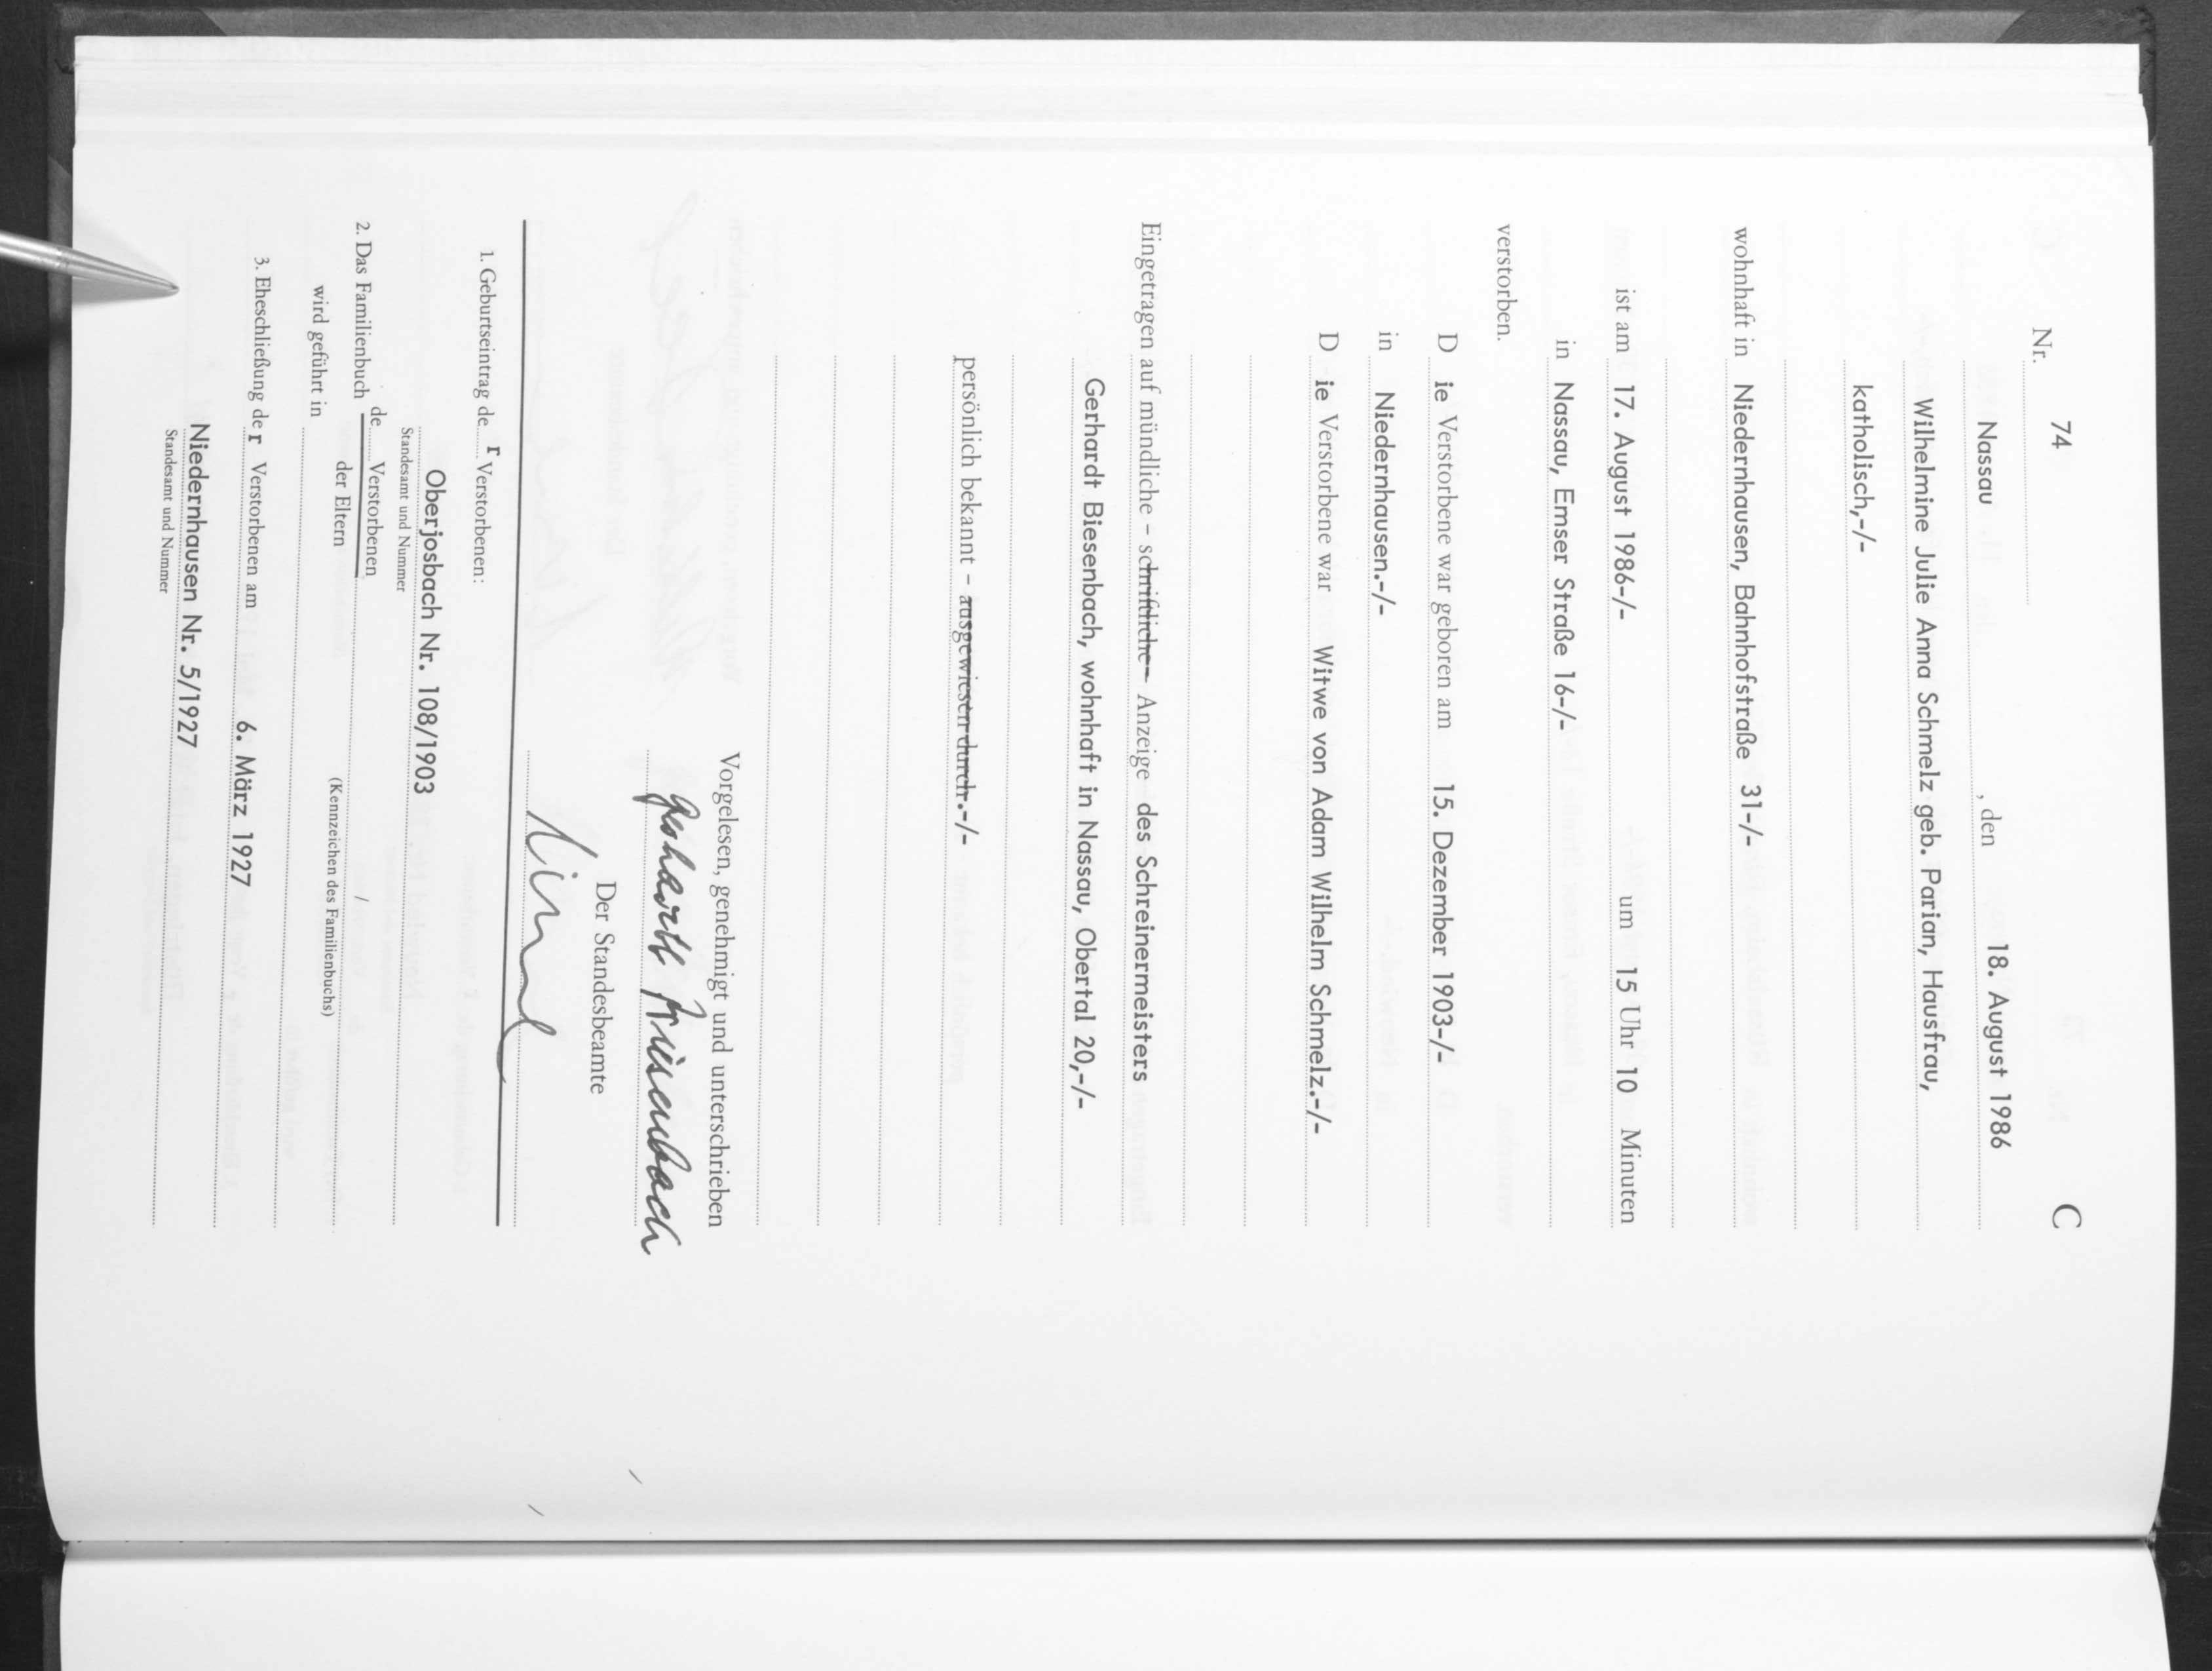 C
Nr. 74
Nassau, den 18. August 1986
Wilhelmine Julie Anna Schmelz geb. Parian, Hausfrau,
katholisch,-/-
wohnhaft in Niedernhausen, Bahnhofstraße 31-/-
ist am 17. August 1986-/- um 15 Uhr 10 Minuten
in Nassau, Emser Straße 16-/-
verstorben.
Die Verstorbene war geboren am 15. Dezember 1903-/-
in Niedernhausen.-/-
Die Verstorbene war Witwe von Adam Wilhelm Schmelz.-/-
Eingetragen auf mündliche - schriftliche - Anzeige des Schreinermeisters
Gerhardt Biesenbach, wohnhaft in Nassau, Obertal 20,-/-
persönlich bekannt - ausgewiesen durch.-/-
Vorgelesen, genehmigt und unterschrieben
Gerhardt Biesenbach
Der Standesbeamte
1. Geburtseintrag der Verstorbenen:
Oberjosbach Nr. 108/1903
Standesamt und Nummer
2. Das Familienbuch de Verstorbenen /
der Eltern (Kennzeichen des Familienbuchs)
wird geführt in
3. Eheschließung der Verstorbenen am 6. März 1927
Niedernhausen Nr. 5/1927
Standesamt und Nummer